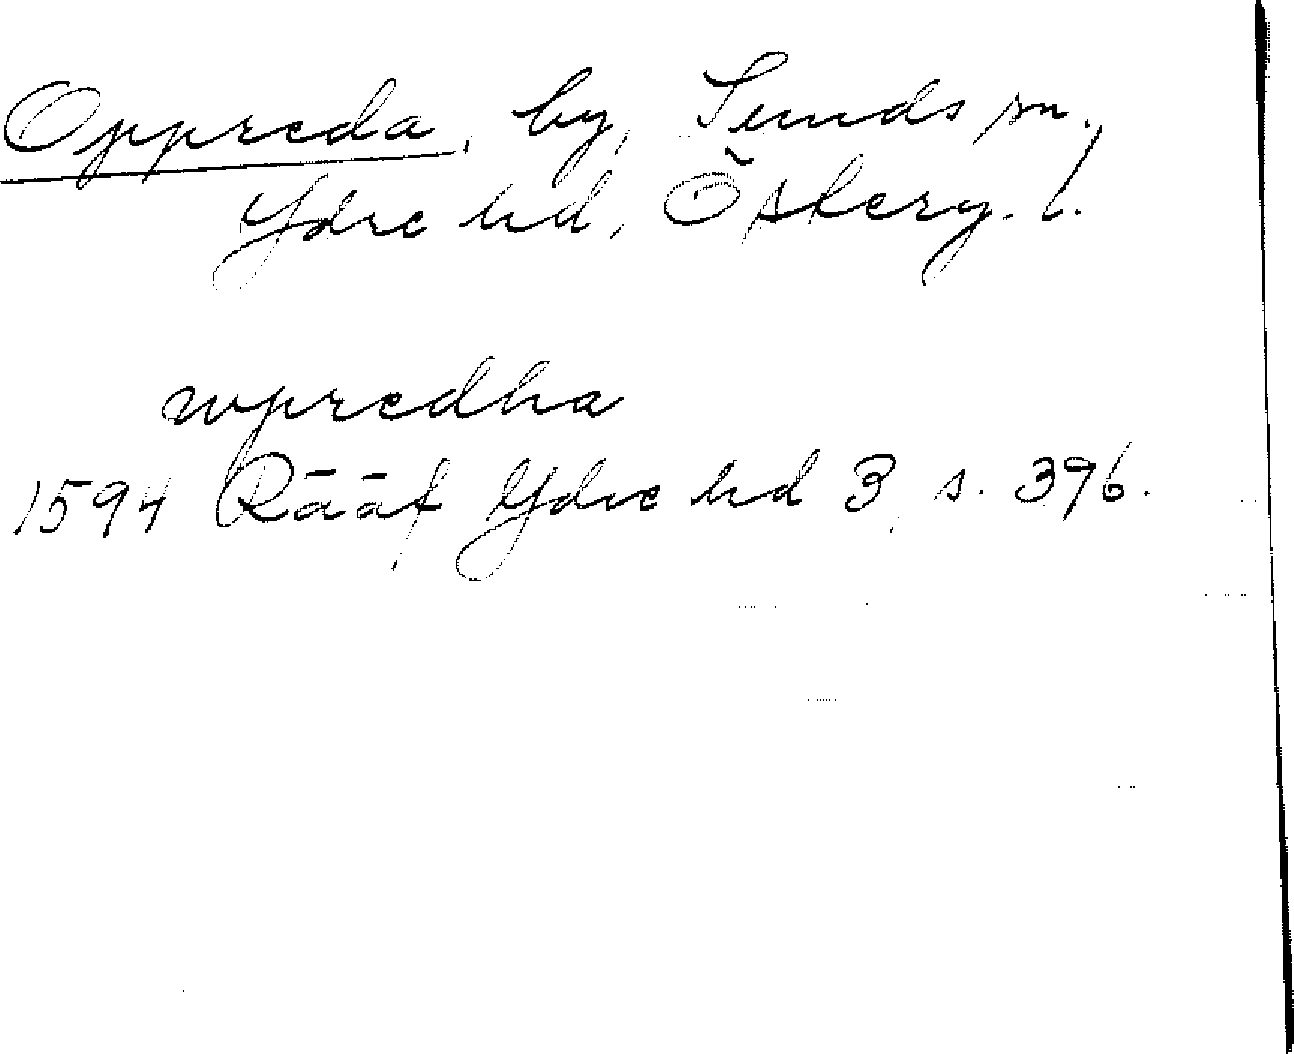 Oppreda, by, Sunds sn.,
Ydre hd, Österg. l.
wpredha
1594 Rääf Ydre hd 3, s. 396.